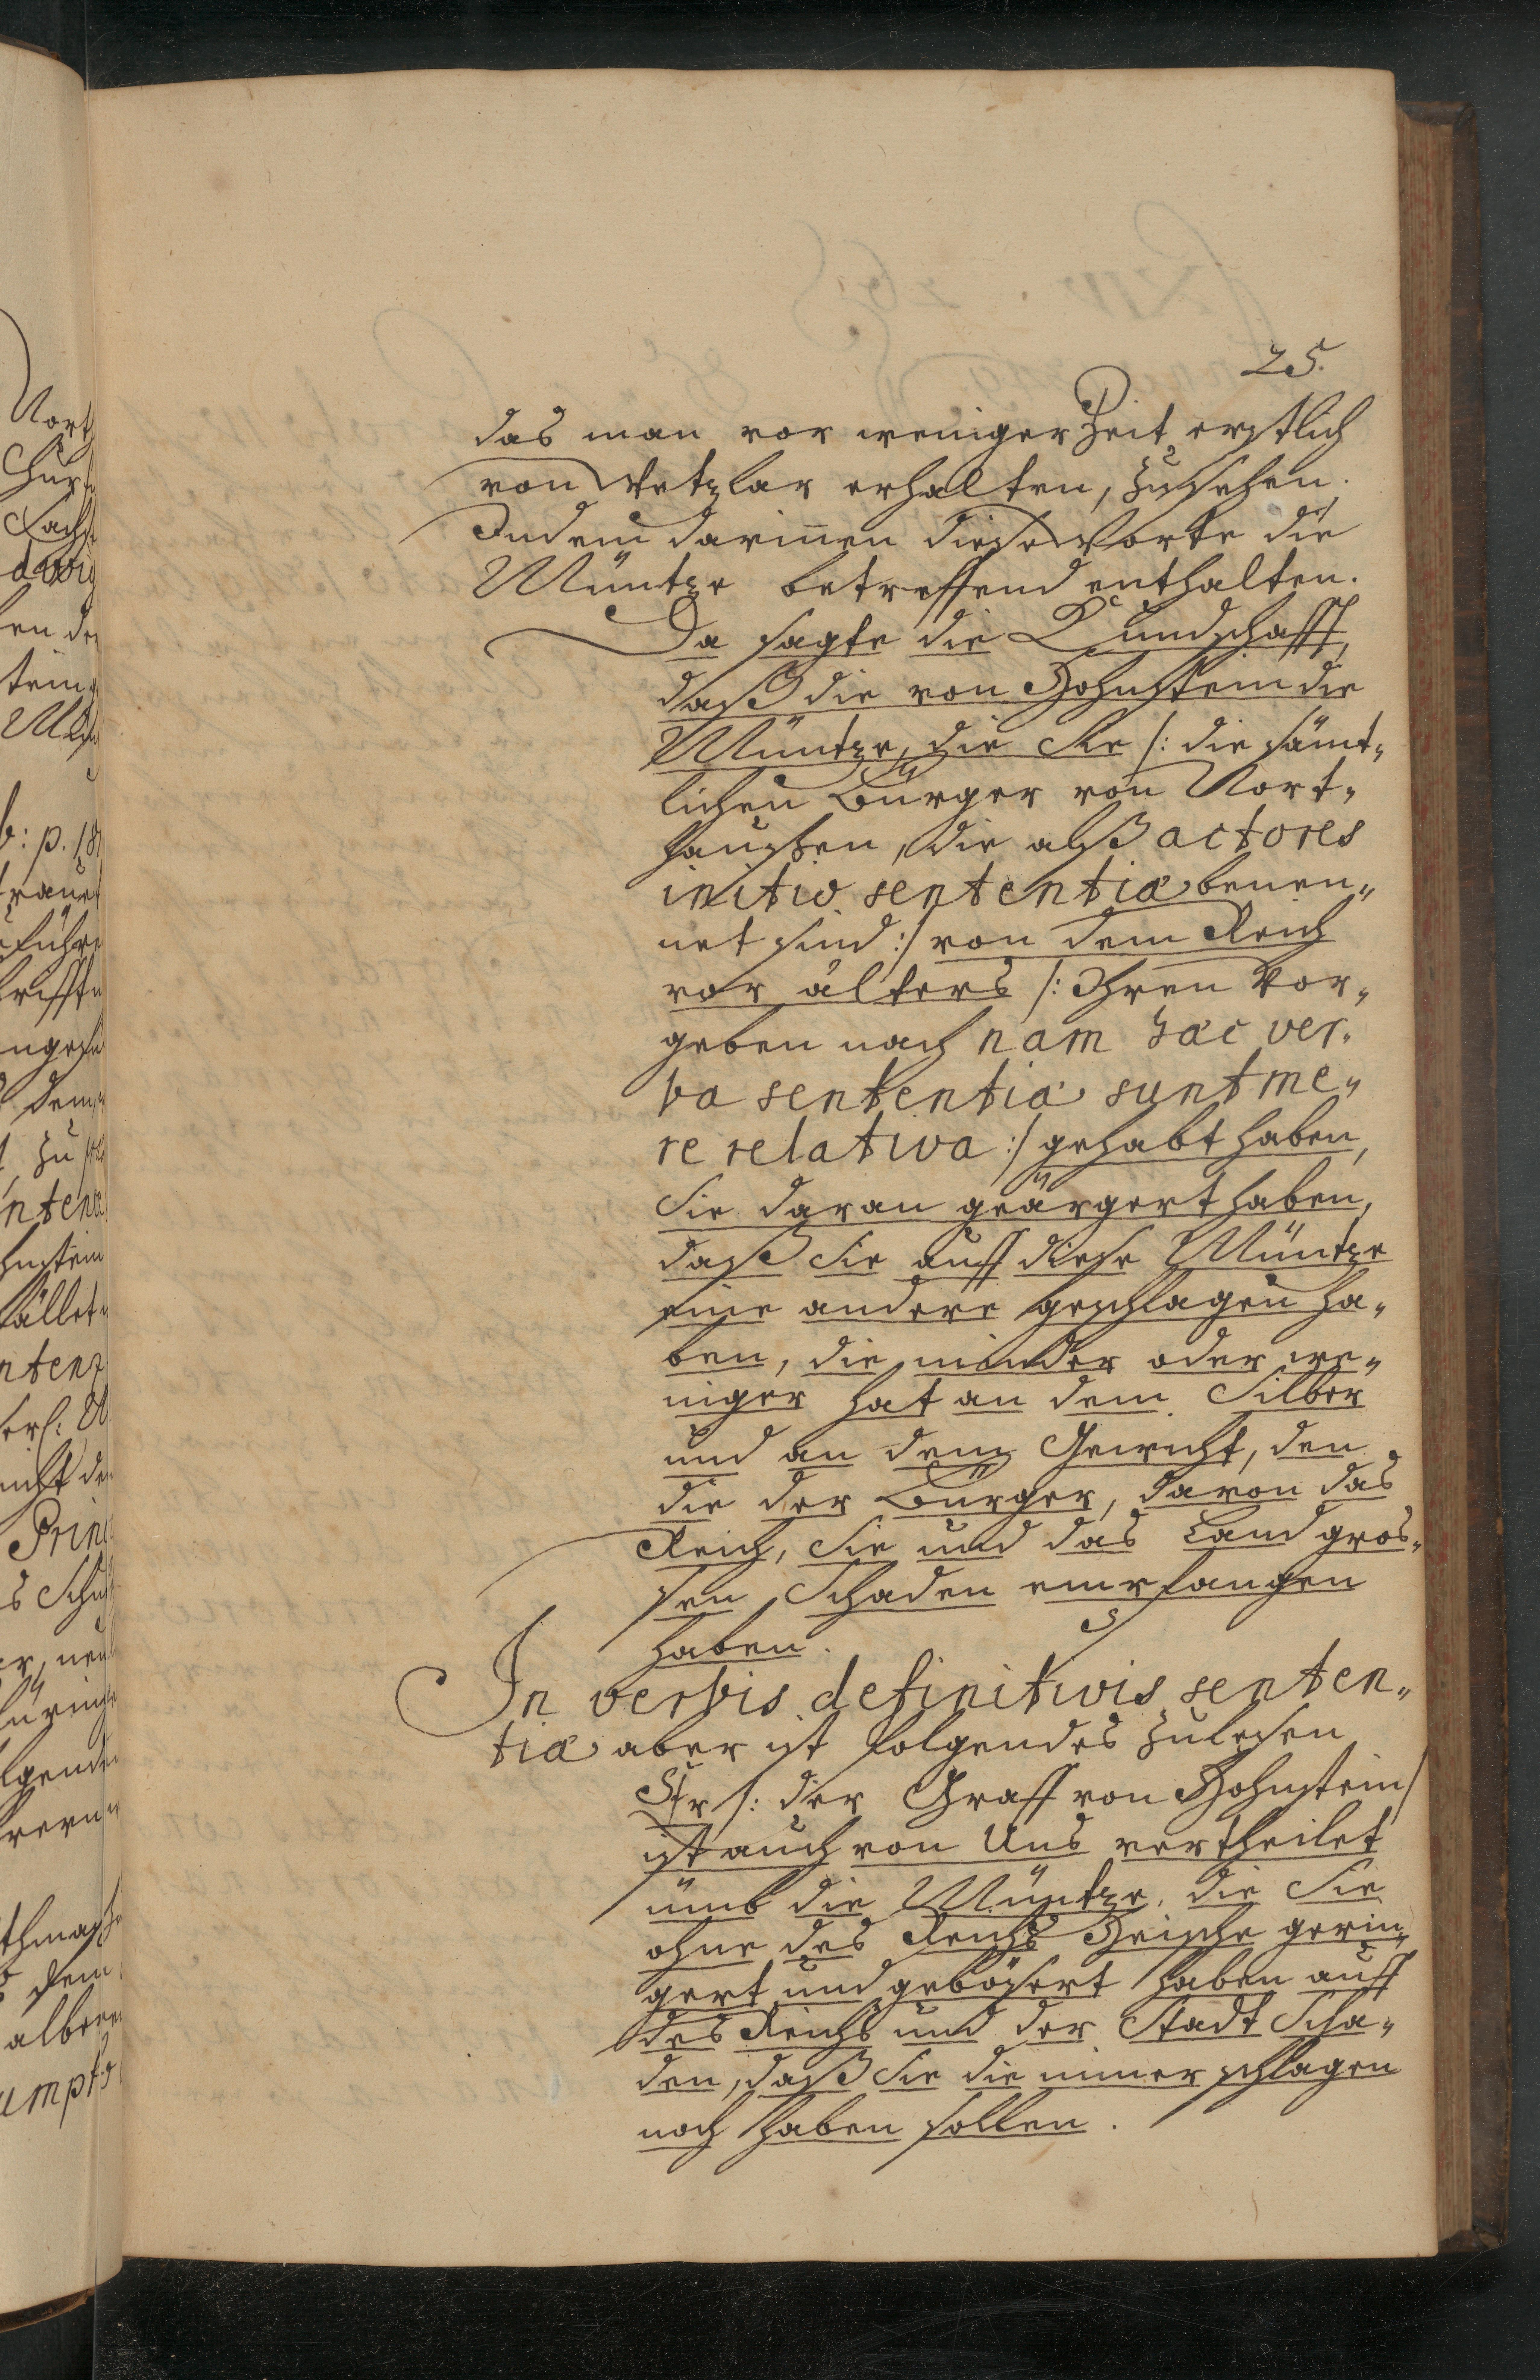 25.
das man vor weniger Zeit erstlich
von Wetzlar erhalten, zusehen.
Indem darinnen diese Worte die
Müntze betreffend enthalten.
Da sagte die Kundschafft,
daß die von Hohnstein die
Müntze, die Sie /: die sämt„
lichen Bürger von Nort„
haußen, die alß actores
initio sententiæ benen„
net sind :/ von dem Reich
vor älters /: Ihren Vor„
geben nach nam hæc ver„
ba sententiæ sunt me„
re relativa :/ gehabt haben,
Sie daran geärgert haben,
daß Sie auff diese Müntze
eine andere geschlagen ha„
ben, die minder oder we„
niger hat an dem Silber
und an dem Gewicht, den
die der Bürger, davon das
Reich, Sie und das Land gros„
sen Schaden empfangen
haben.
In verbis definitivis senten„
tiæ aber ist folgendes zulesen
Er /: der Graff von Hohnstein /
ist auch von Uns vertheilet
ümb die Müntze, die Sie
ohne des Reichs Heische gerin„
gert und gebößert haben auff
des Reichs und der Stadt Scha„
den, daß Sie die nimer schlagen
noch haben sollen.